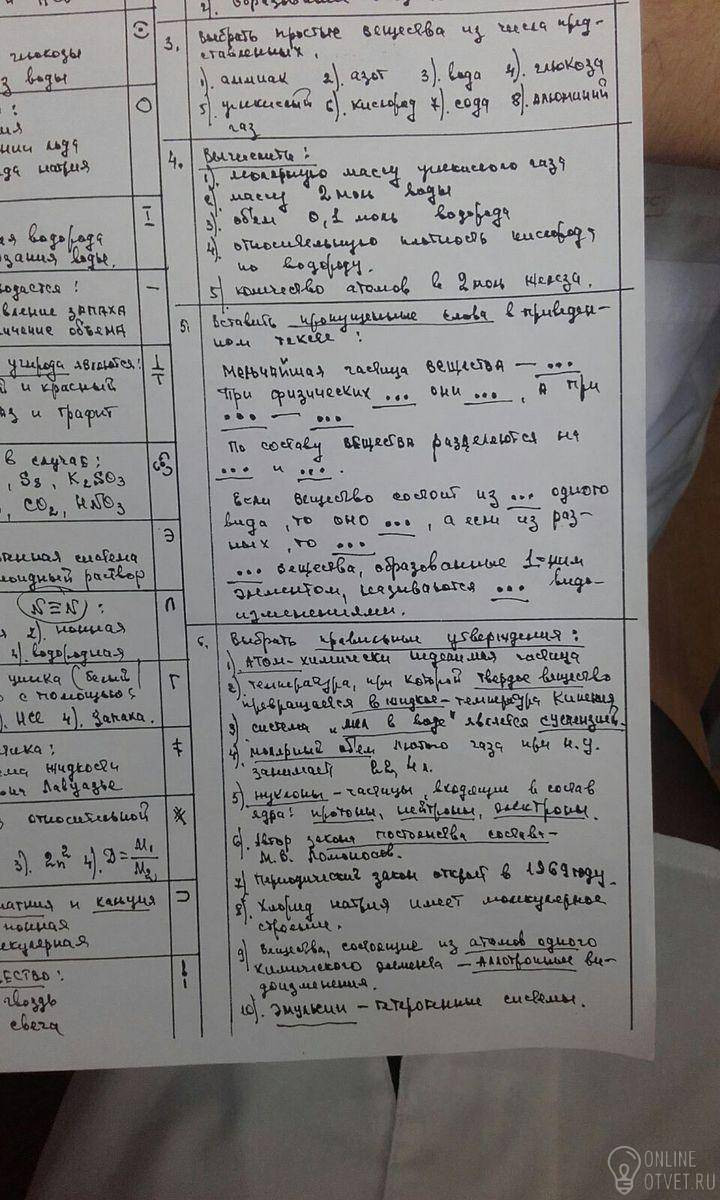 глюкозы
з воды
ия
нии льда
да натрия
ия водорода
зания воды.
юдается:
вление запаха
ичение объёма
углерода являются:
й и красный
аз и графит
в случае:
, S8, K2SO3
, CO2, HNO3
енная система
лоидный раствор
N≡N :
я 2). ионная
4). водородная
цинка (белый)
ь с помощью:
). HCl 4). Запаха.
тика:
ема жидкости
оич Лавуазье
з относительной
3). 2n² 4). D = M1/M2
магния и кальция
ионная
екулярная
ЩЕСТВО:
гвоздь
свеча
3. Выбрать простые вещества из числа пред-
ставленных.
1). аммиак 2). азот 3). вода 4). глюкоза
5). углекислый 6). кислород 7). сода 8). алюминий
газ
4. Вычислить:
1). молярную массу углекислого газа
2). массу 2 моль воды
3). объём 0,1 моль водорода
4). относительную плотность кислорода
по водороду.
5). количество атомов в 2 моль железа.
5. Вставить пропущенные слова в приведен-
ном тексте:
Мельчайшая частица вещества — ...
При физических ... они ..., а при
... — ...
По составу вещества разделяются на
... и ....
Если вещество состоит из ... одного
вида, то оно ..., а если из раз-
ных, то ...
... вещества, образованные 1-ним
элементом, называются ... видо-
изменениями.
6. Выбрать правильные утверждения:
1). Атом - химически неделимая частица
2). температура, при которой твердое вещество
превращается в жидкое - температура кипения
3). система "мел в воде" является суспензией.
4). молярный объём любого газа при н.у.
занимает 22,4 л.
5). нуклоны - частицы, входящие в состав
ядра: протоны, нейтроны, электроны.
6). Автор закона постоянства состава -
М.В. Ломоносов.
7). Периодический закон открыт в 1969 году.
8). Хлорид натрия имеет молекулярное
строение.
9). Вещества, состоящие из атомов одного
химического элемента - аллотропные ви-
доизменения.
10). Эмульсии - гетерогенные системы.
ONLINE
OTVET.RU